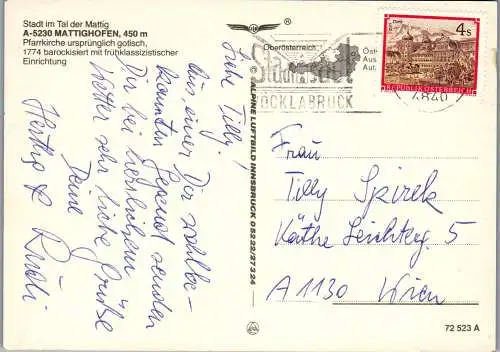 Stadt im Tal der Mattig
A-5230 MATTIGHOFEN, 450 m
Pfarrkirche ursprünglich gotisch,
1774 barockisiert mit frühklassizistischer
Einrichtung
Liebe Tilly!
Aus einer Dir wohlbe-
kannten Gegend senden
Dir bei herrlichem
Wetter sehr liebe Grüße
Deine
Hertha & Rudi
ALPINE LUFTBILD INNSBRUCK 05222/27324
Oberösterreich
Stadt
VÖCKLABRUCK
4 S
REPUBLIK ÖSTERREICH
Frau
Tilly Spirek
Käthe Leichterg. 5
A 1130 Wien
72 523 A